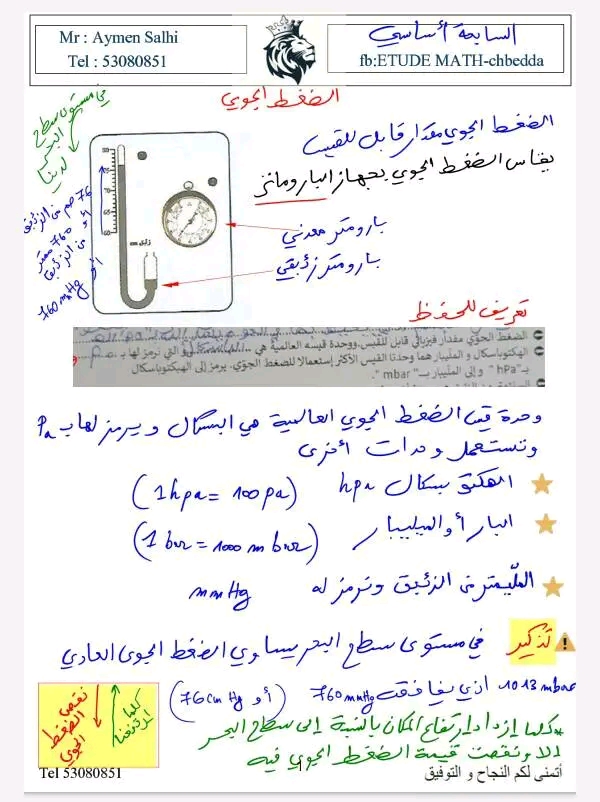 Mr : Aymen Salhi
Tel : 53080851
السابعة أساسي
fb:ETUDE MATH-chbedda
الضغط الجوي
في مستوى سطح
البحر
لدينا
76 صم من الزئبق
أو 760 ممتر
من الزئبق
أو
760 mmHg
الضغط الجوي مقدار قابل للقيس
يقاس الضغط الجوي بجهاز البارومتر
80
75
70
65
60
زئبق
بارومتر معدني
بارومتر زئبقي
تعريف للحفظ
الضغط الجوّي مقدار فيزيائي قابل للقيس ووحدة قيسه العالمية هي
و التي نرمز لها بـ
الهكتوباسكال و المليبار هما وحدتا القيس الأكثر إستعمالا للضغط الجوّي. يرمز إلى الهيكتوباسكال
بـ "hPa" و إلى المليبار بـ "mbar".
وحدة قيس الضغط الجوي العالمية هي البسكال و يرمز لها ب Pa
وتستعمل وحدات أخرى
الهكتو بسكال hpa (1hpa = 100pa)
البار أو الميليبار (1 bar = 1000 m bar)
الملّيمتر من الزئبق ونرمز له mmHg
تذكير
في مستوى سطح البحر يساوي الضغط الجوي العادي
1013 mbar اذي يوافق 760 mmHg (أو 76 cm Hg)
*كلما إزداد إرتفاع المكان بالنسبة إلى سطح البحر
الا ونقصت قيمة الضغط الجوي فيه
نقص
الضغط
الجوي
كلما
ارتفعنا
Tel 53080851
1
أتمنى لكم النجاح و التوفيق